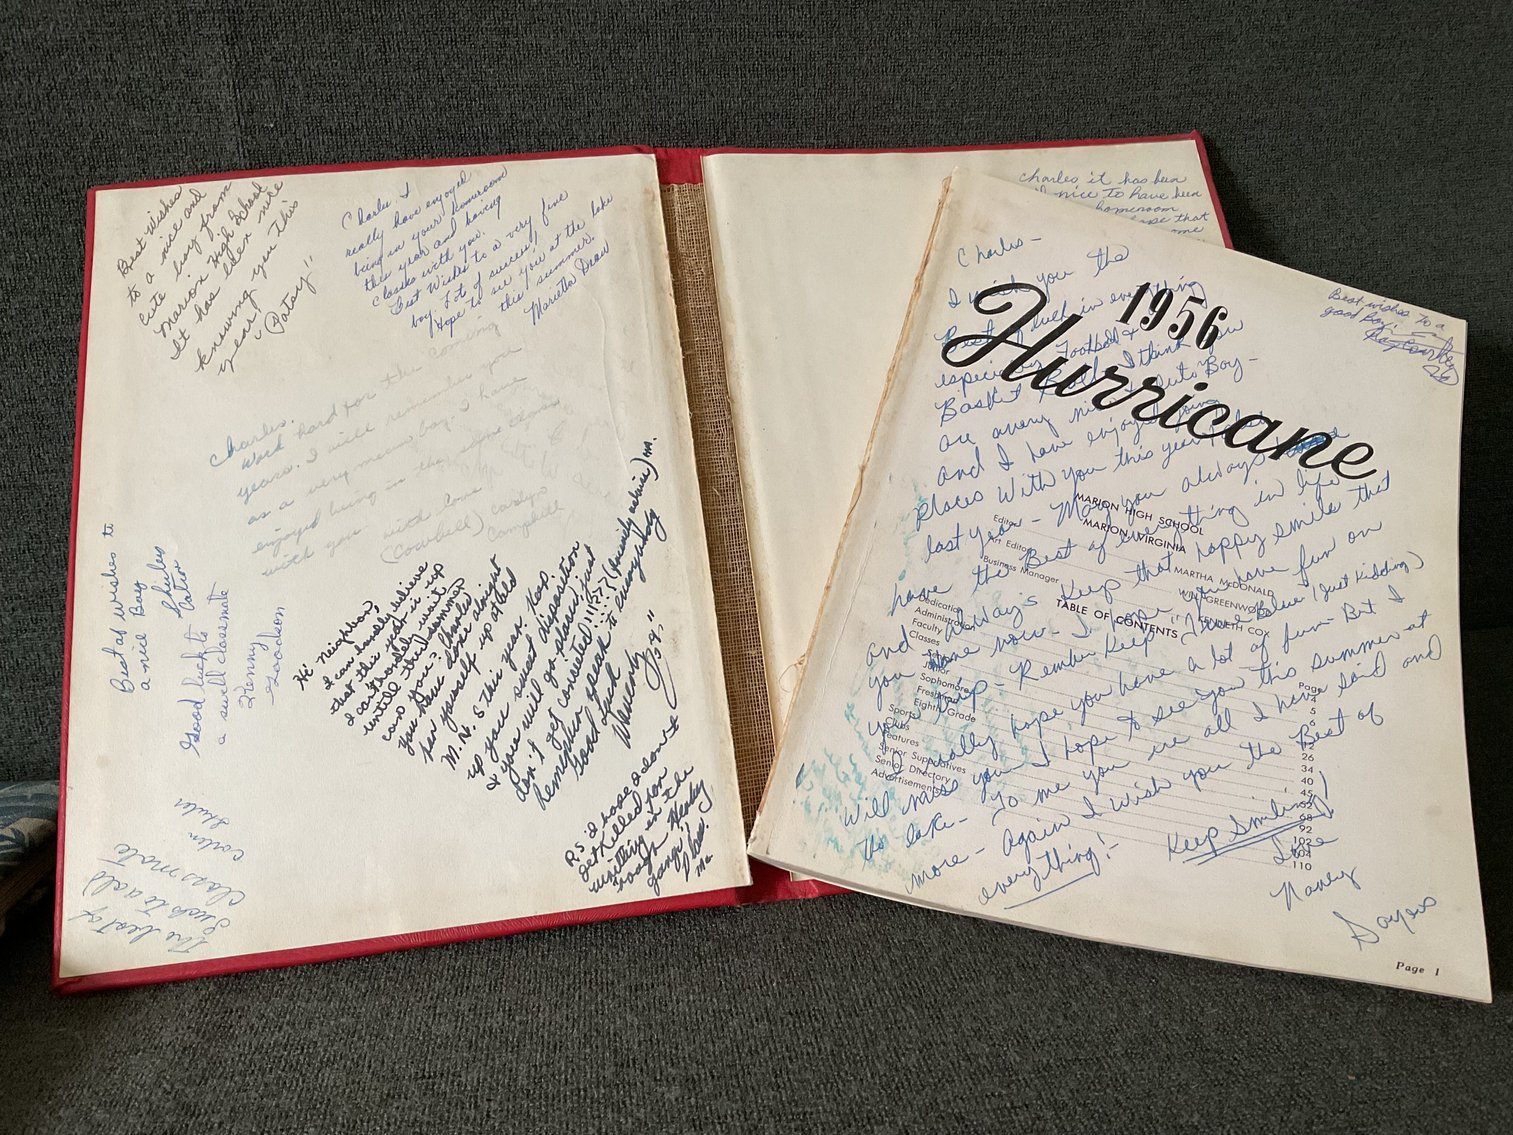 Best Wishes
to a nice and
cute boy from
Marion High School
It has been nice
knowing you this
year!
"Patsy"
Charles I
really have enjoyed
being in your homeroom
this year and having
classes with you.
Best Wishes to a very fine
boy. Lot of success,
Hope to see you at the lake
this summer.
Marietta Draw
Charles,
Work hard for the coming
years. I will remember you
as a very mean boy. I have
enjoyed being in the same class
with you
with love
(Cowbell) Carolyn
Campbell
Best of wishes to
a nice Boy
Shirley
Good luck to
a swell classmate
Hi' Neighbor,
I can hardly believe
that this year is up
I can hardly wait
until this summer
can you? Charles
you have done alright
for yourself up at old
M.H.S this year. Keep
up your sweet disposition
& you will go places, just
don't get conceited!!!!?? (sisterly advice) m.
Remember speak to everybody
Good Luck
"Joy"
P.S. I hope I don't
get killed for
writing in the
'rough
gang'
place!
The best of
luck to a old
Classmate
Charles it has been
nice to have been
homeroom
that
me
Charles-
I wish you the
Best of luck in everything
especially Football &
Basket Ball. I think you
are a very nice & cute Boy-
and I have enjoyed going
places With you this year
last year- May you always
have the Best of everything in life
and Always Keep that happy smile that
you have now- I hope you have fun on
your trip- Remember Keep "True Blue" (Just Kidding)
I really hope you have a lot of fun- But I
Will miss you I hope to see you this summer at
the lake- To me you are all I have said and
more- Again I wish you the Best of
everything!-
Keep Smiling!
Love
Nancy
Sayers
1956
Hurricane
Best wishes to a
good boy!
MARION HIGH SCHOOL
MARION, VIRGINIA
Editor
MARTHA McDONALD
Art Editor
Business Manager
KENNETH COX
TABLE OF CONTENTS
Page
Dedication
4
Administration
5
Faculty
6
Classes
Junior
Sophomore
Freshman
Eighth Grade
12
Sports
26
Clubs
34
Features
40
Senior Superlatives
45
Senior Directory
Advertisements
68
92
102
104
110
Page 1